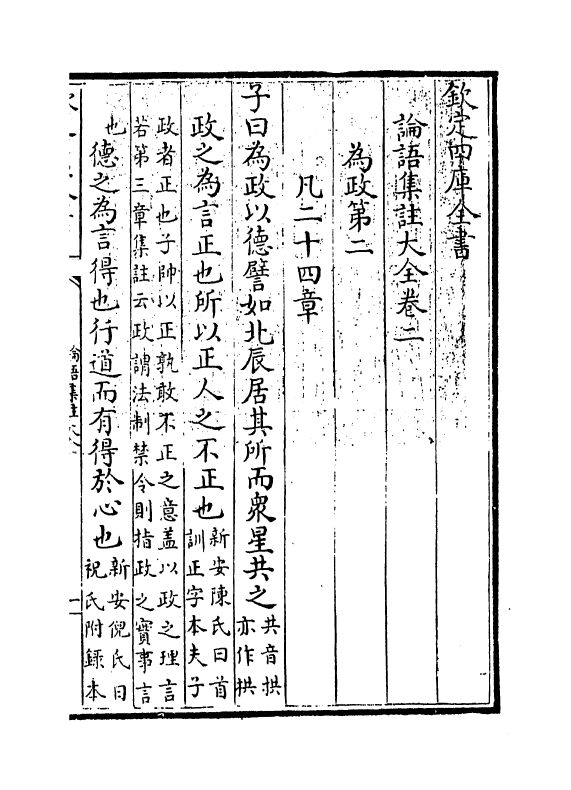 欽定四庫全書
論語集註大全卷二
為政第二
凡二十四章
子曰為政以德譬如北辰居其所而衆星共之共音拱亦作拱
政之為言正也所以正人之不正也新安陳氏曰首訓正字本夫子
政者正也子帥以正孰敢不正之意盖以政之理言
若第三章集註云政謂法制禁令則指政之實事言
也德之為言得也行道而有得於心也新安倪氏曰祝氏附錄本
論語集註大全
一